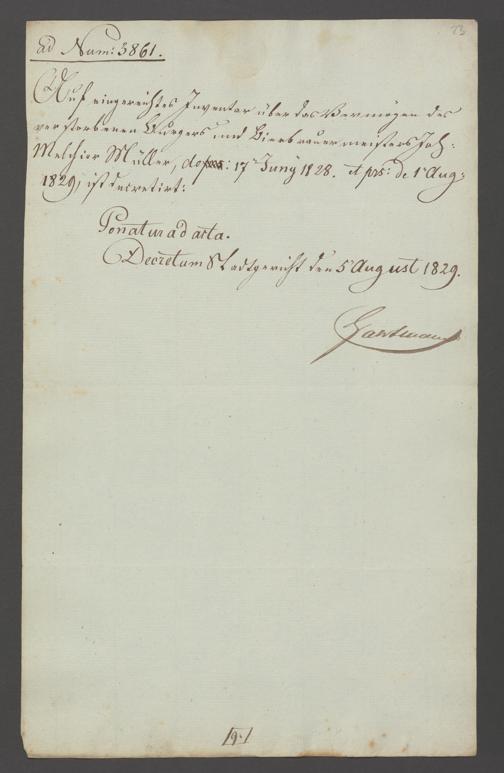 23
ad Num: 3861.
Auf eingereichtes Inventar über das Vermögen des
verstorbenen Burgers und Bierbrauermeisters Joh:
Melchior Müller, de 17t Juny 1828. et prs: de 1t Aug:
1829, ist decretirt:
Ponatur ad acta.
Decretum Stadtgericht den 5t August 1829.
Hartmann
/9./